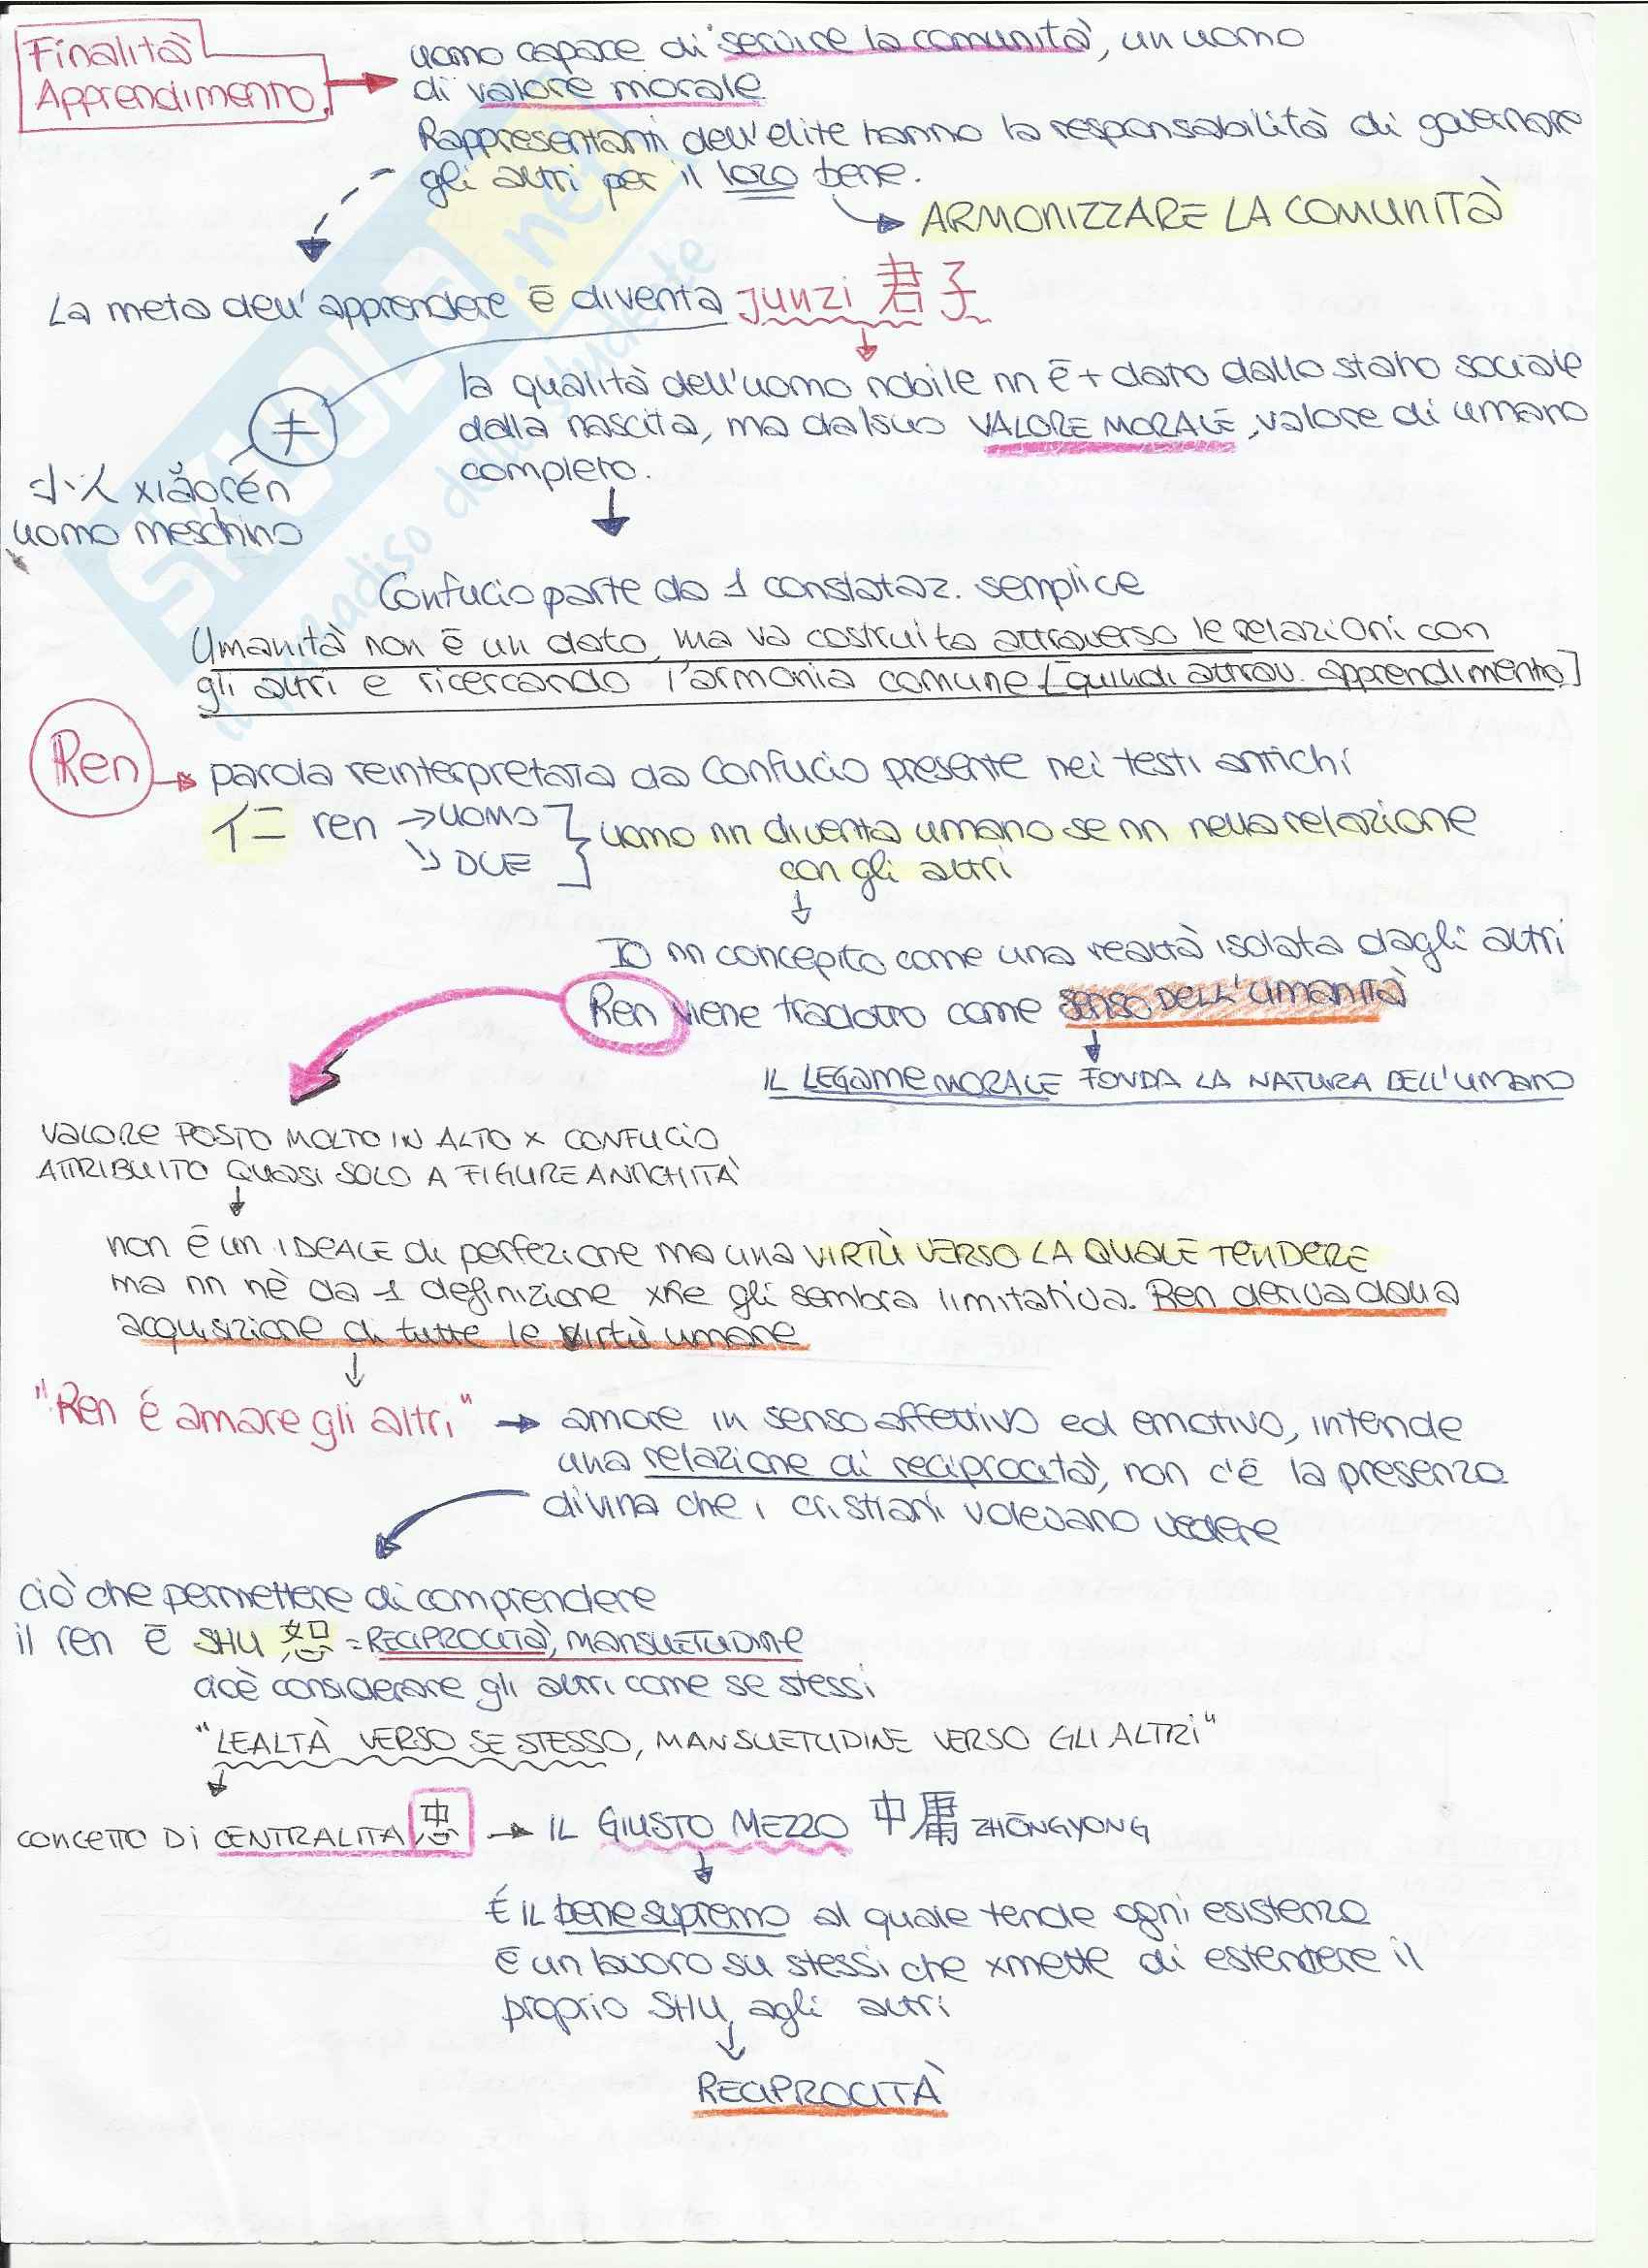 Finalità
Apprendimento.
uomo capace di servire la comunità, un uomo
di valore morale
Rappresentanti dell'elite hanno la responsabilità di governare
gli altri per il loro bene.
ARMONIZZARE LA COMUNITÀ
La meta dell'apprendere è diventa junzi 君子
la qualità dell'uomo nobile nn è + dato dallo stato sociale
dalla nascita, ma dal suo VALORE MORALE, valore di umano
completo.
≠
小人 xiǎorén
uomo meschino
Confucio parte da 1 constataz. semplice
Umanità non è un dato, ma va costruita attraverso le relazioni con
gli altri e ricercando l'armonia comune [quindi attrav. apprendimento]
Ren
parola reinterpretata da Confucio presente nei testi antichi
仁 ren → UOMO
↘ DUE
uomo nn diventa umano se nn nella relazione
con gli altri
IO nn concepito come una realtà isolata dagli altri
Ren viene tradotto come SENSO DELL'UMANITÀ
IL LEGAME MORALE FONDA LA NATURA DELL'UMANO
VALORE POSTO MOLTO IN ALTO x CONFUCIO
ATTRIBUITO QUASI SOLO A FIGURE ANTICHITÀ
non è un IDEALE di perfezione ma una VIRTÙ VERSO LA QUALE TENDERE
ma nn nè da 1 definizione xkè gli sembra limitativa. Ren deriva dalla
acquisizione di tutte le virtù umane
"Ren é amare gli altri" → amore in senso affettivo ed emotivo, intende
una relazione di reciprocità, non c'è la presenza
divina che i cristiani volevano vedere
ciò che permettere di comprendere
il ren è SHU 恕 = RECIPROCITÀ, MANSUETUDINE
cioè considerare gli altri come se stessi
"LEALTÀ VERSO SE STESSO, MANSUETUDINE VERSO GLI ALTRI"
CONCETTO DI CENTRALITÀ 忠 → IL GIUSTO MEZZO 中庸 ZHŌNGYONG
É IL bene supremo al quale tende ogni esistenza
È un lavoro su stessi che xmette di estendere il
proprio SHU agli altri
RECIPROCITÀ
SKUOLA.net
il paradiso dello studente